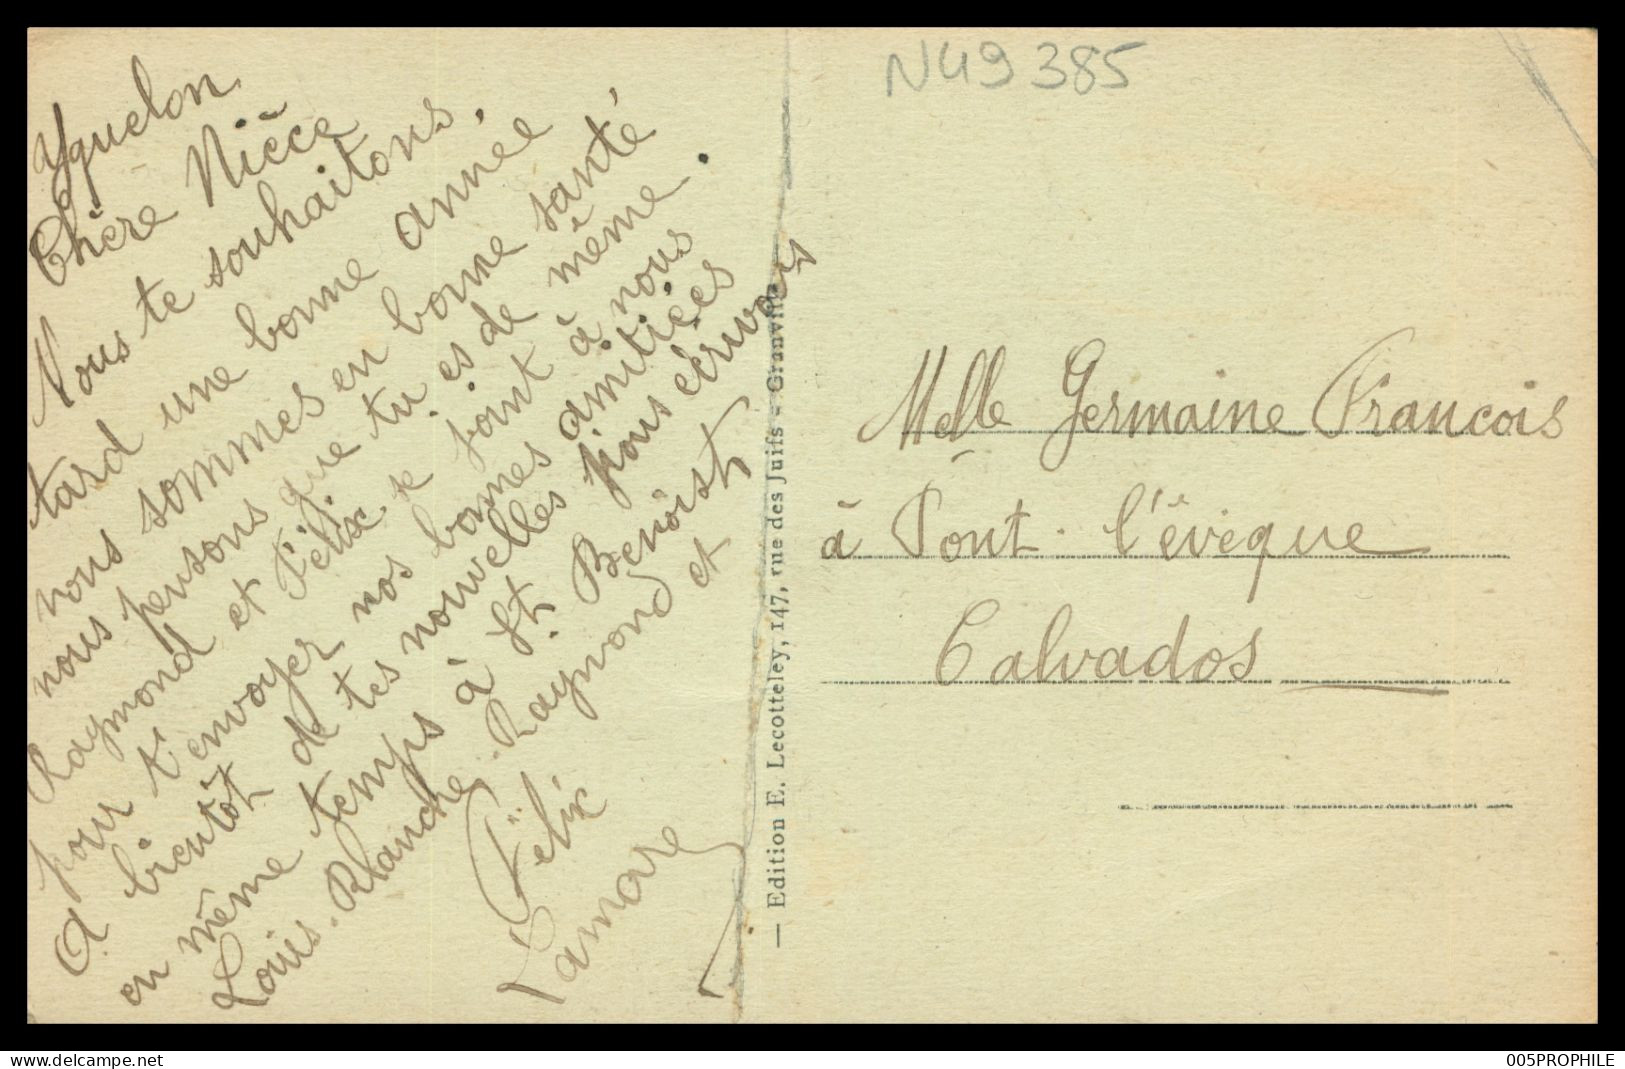 Yquelon
Chère Nièce
Nous te souhaitons,
tard une bonne année
nous sommes en bonne santé
nous pensons que tu es de même.
Raymond et Félix se joint à nous
pour t'envoyer nos bonnes amitiées
A bientôt de tes nouvelles nous écrivons
en même temps à St. Benoist
Louis. Blanche. Raymond et
Félix
Lamare
— Edition E. Lecotteley, 147, rue des Juifs - Granville
N49 385
Melle Germaine Francois
à Pont. l'évèque
Calvados
www.delcampe.net
005PROPHILE